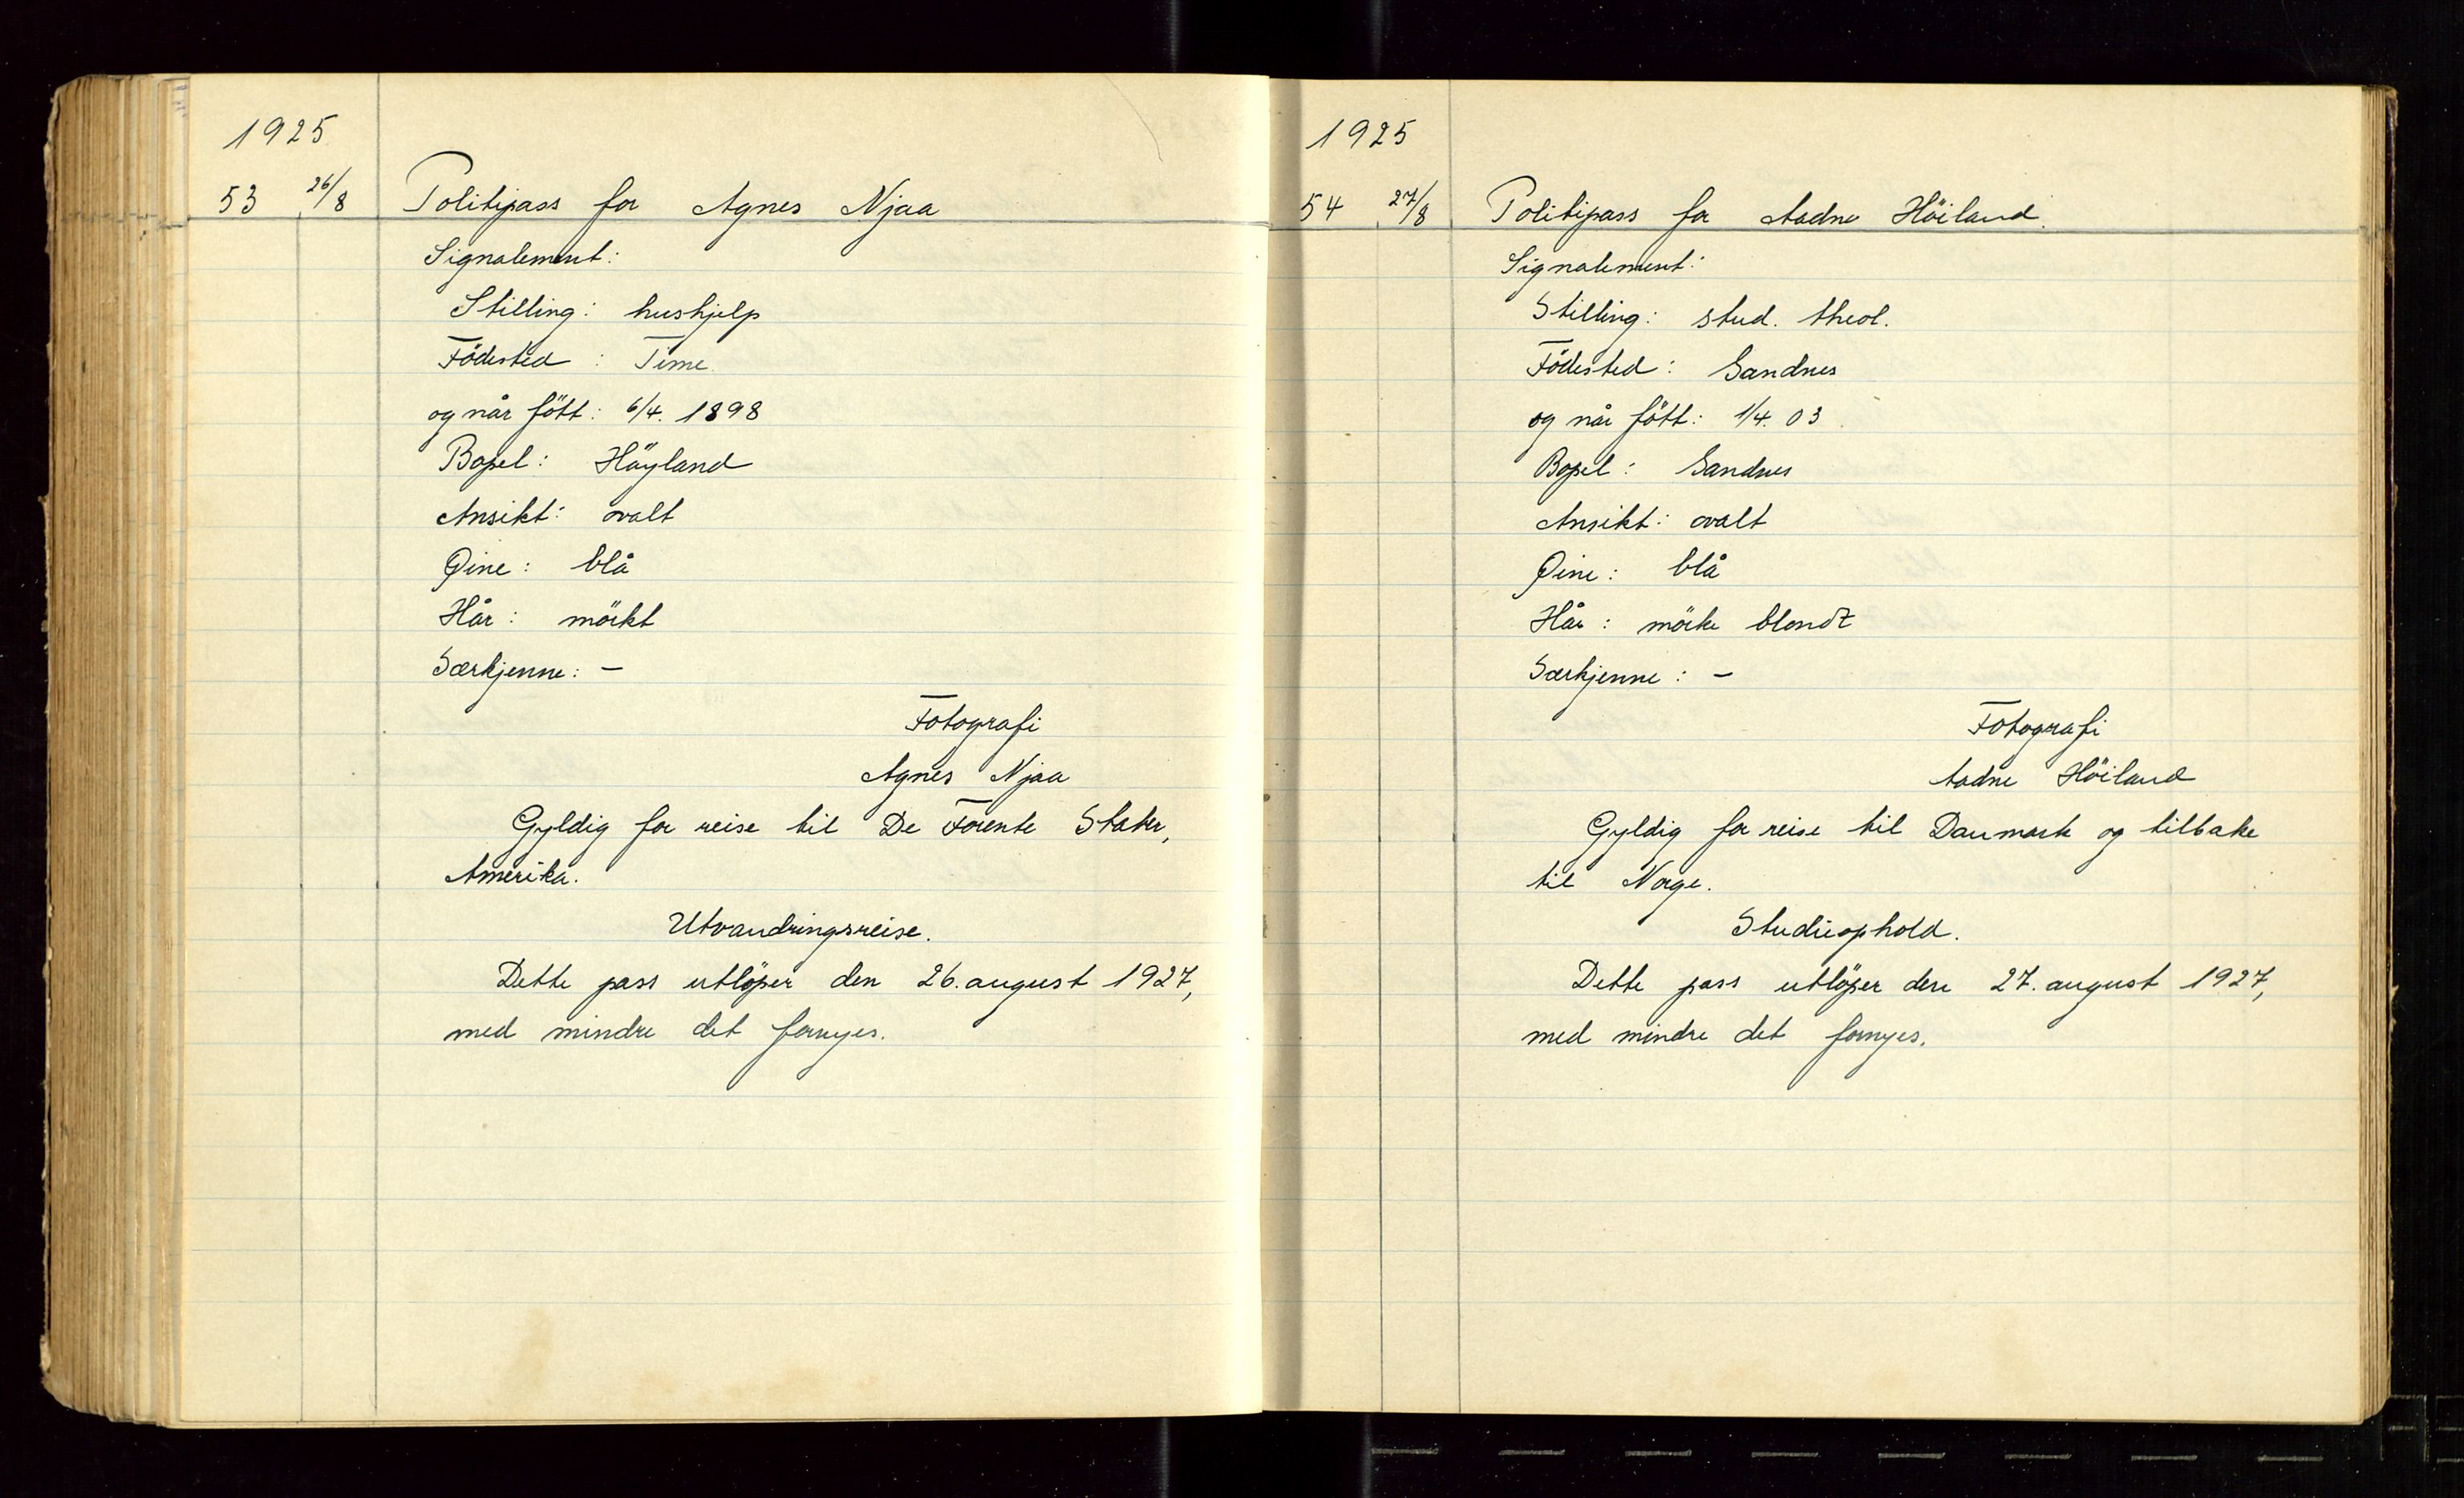 1925
53 26/8 Politipass for Agnes Njaa
Signalement:
Stilling: hushjelp
Födested : Time
og når fött: 6/4. 1898
Bopel: Höyland
Ansikt: ovalt
Øine: blå
Hår: mörkt
Særkjenne: -
Fotografi
Agnes Njaa
Gyldig for reise til De Forente Stater,
Amerika.
Utvandringsreise.
Dette pass utlöper den 26. august 1927,
med mindre det fornyes.
1925
54 27/8 Politipass for Aadne Höiland.
Signalement:
Stilling: stud. theol.
Födested: Sandnes
og når fött: 1/4. 03
Bopel: Sandnes
Ansikt: ovalt
Øine: blå
Hår: mörke blondt
Særkjenne: -
Fotografi
Aadne Höiland
Gyldig for reise til Danmark og tilbake
til Norge.
Studieophold.
Dette pass utlöper den 27. august 1927,
med mindre det fornyes.